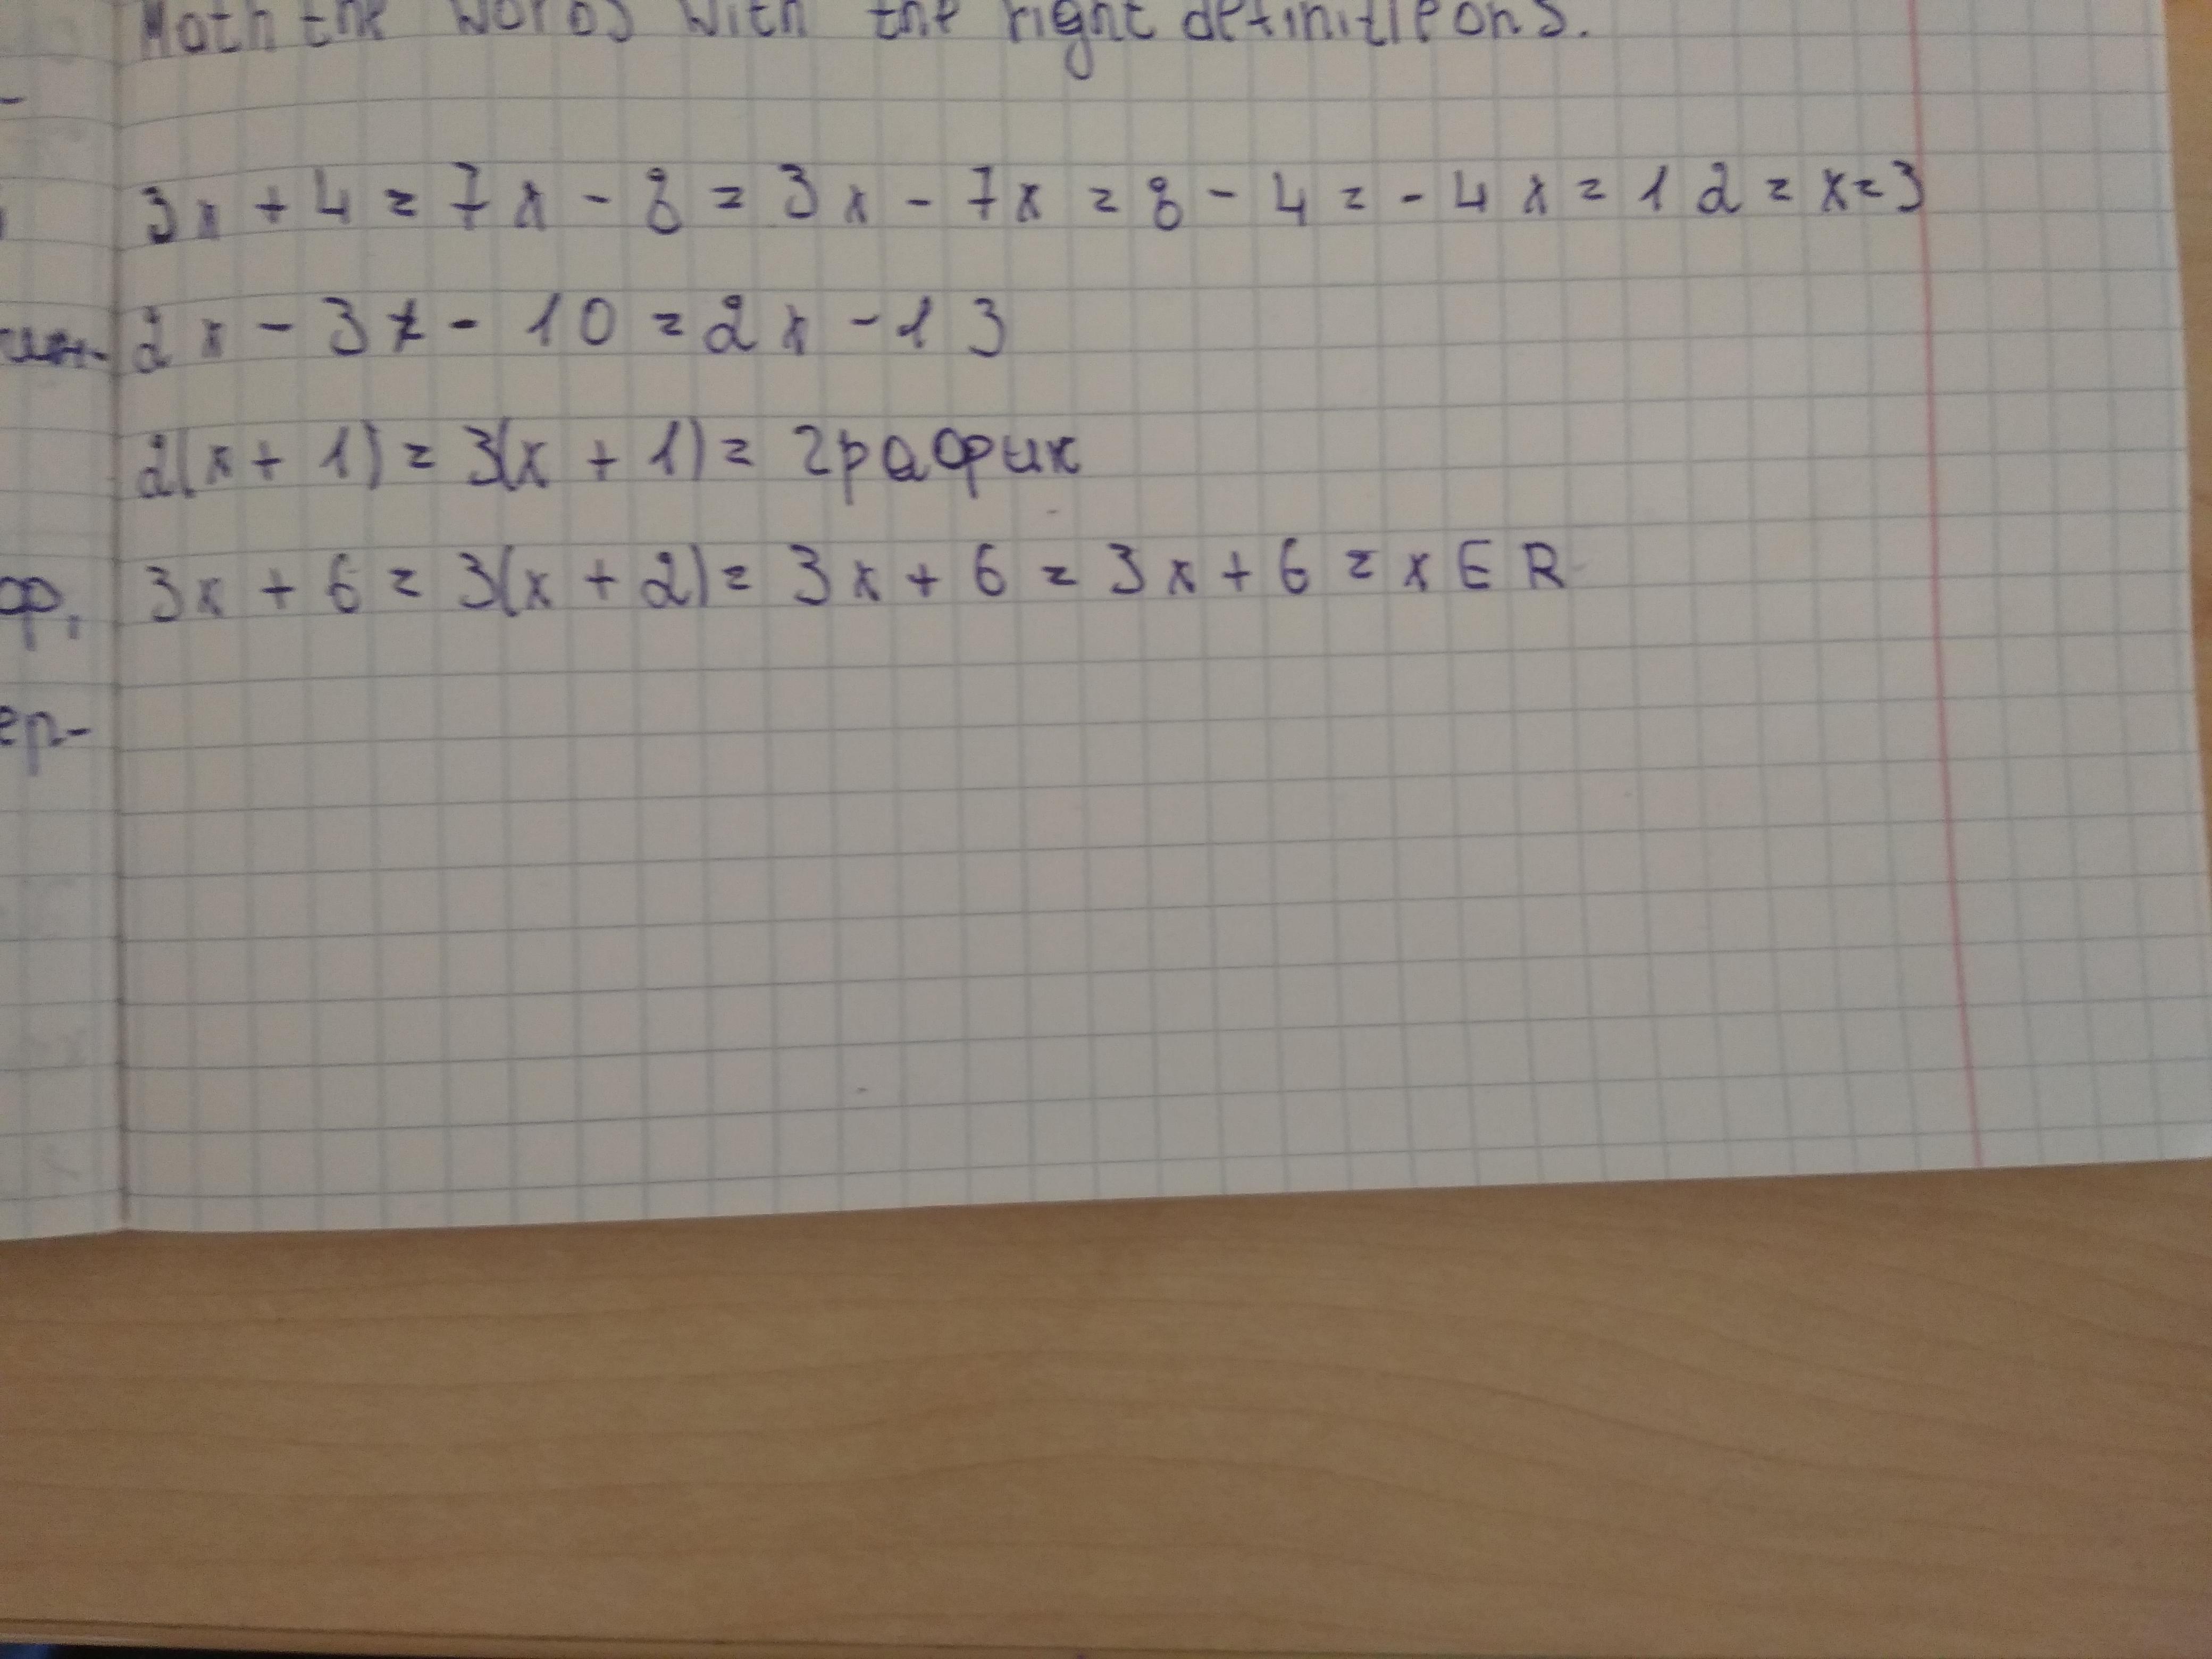 Moth the words with the right definitleons.
3x + 4 = 7x - 8 = 3x - 7x = 8 - 4 = - 4x = 12 = x = 3
2x - 3x - 10 = 2x - 13
2(x + 1) = 3(x + 1) = график
3x + 6 = 3(x + 2) = 3x + 6 = 3x + 6 = x ∈ R
ер-